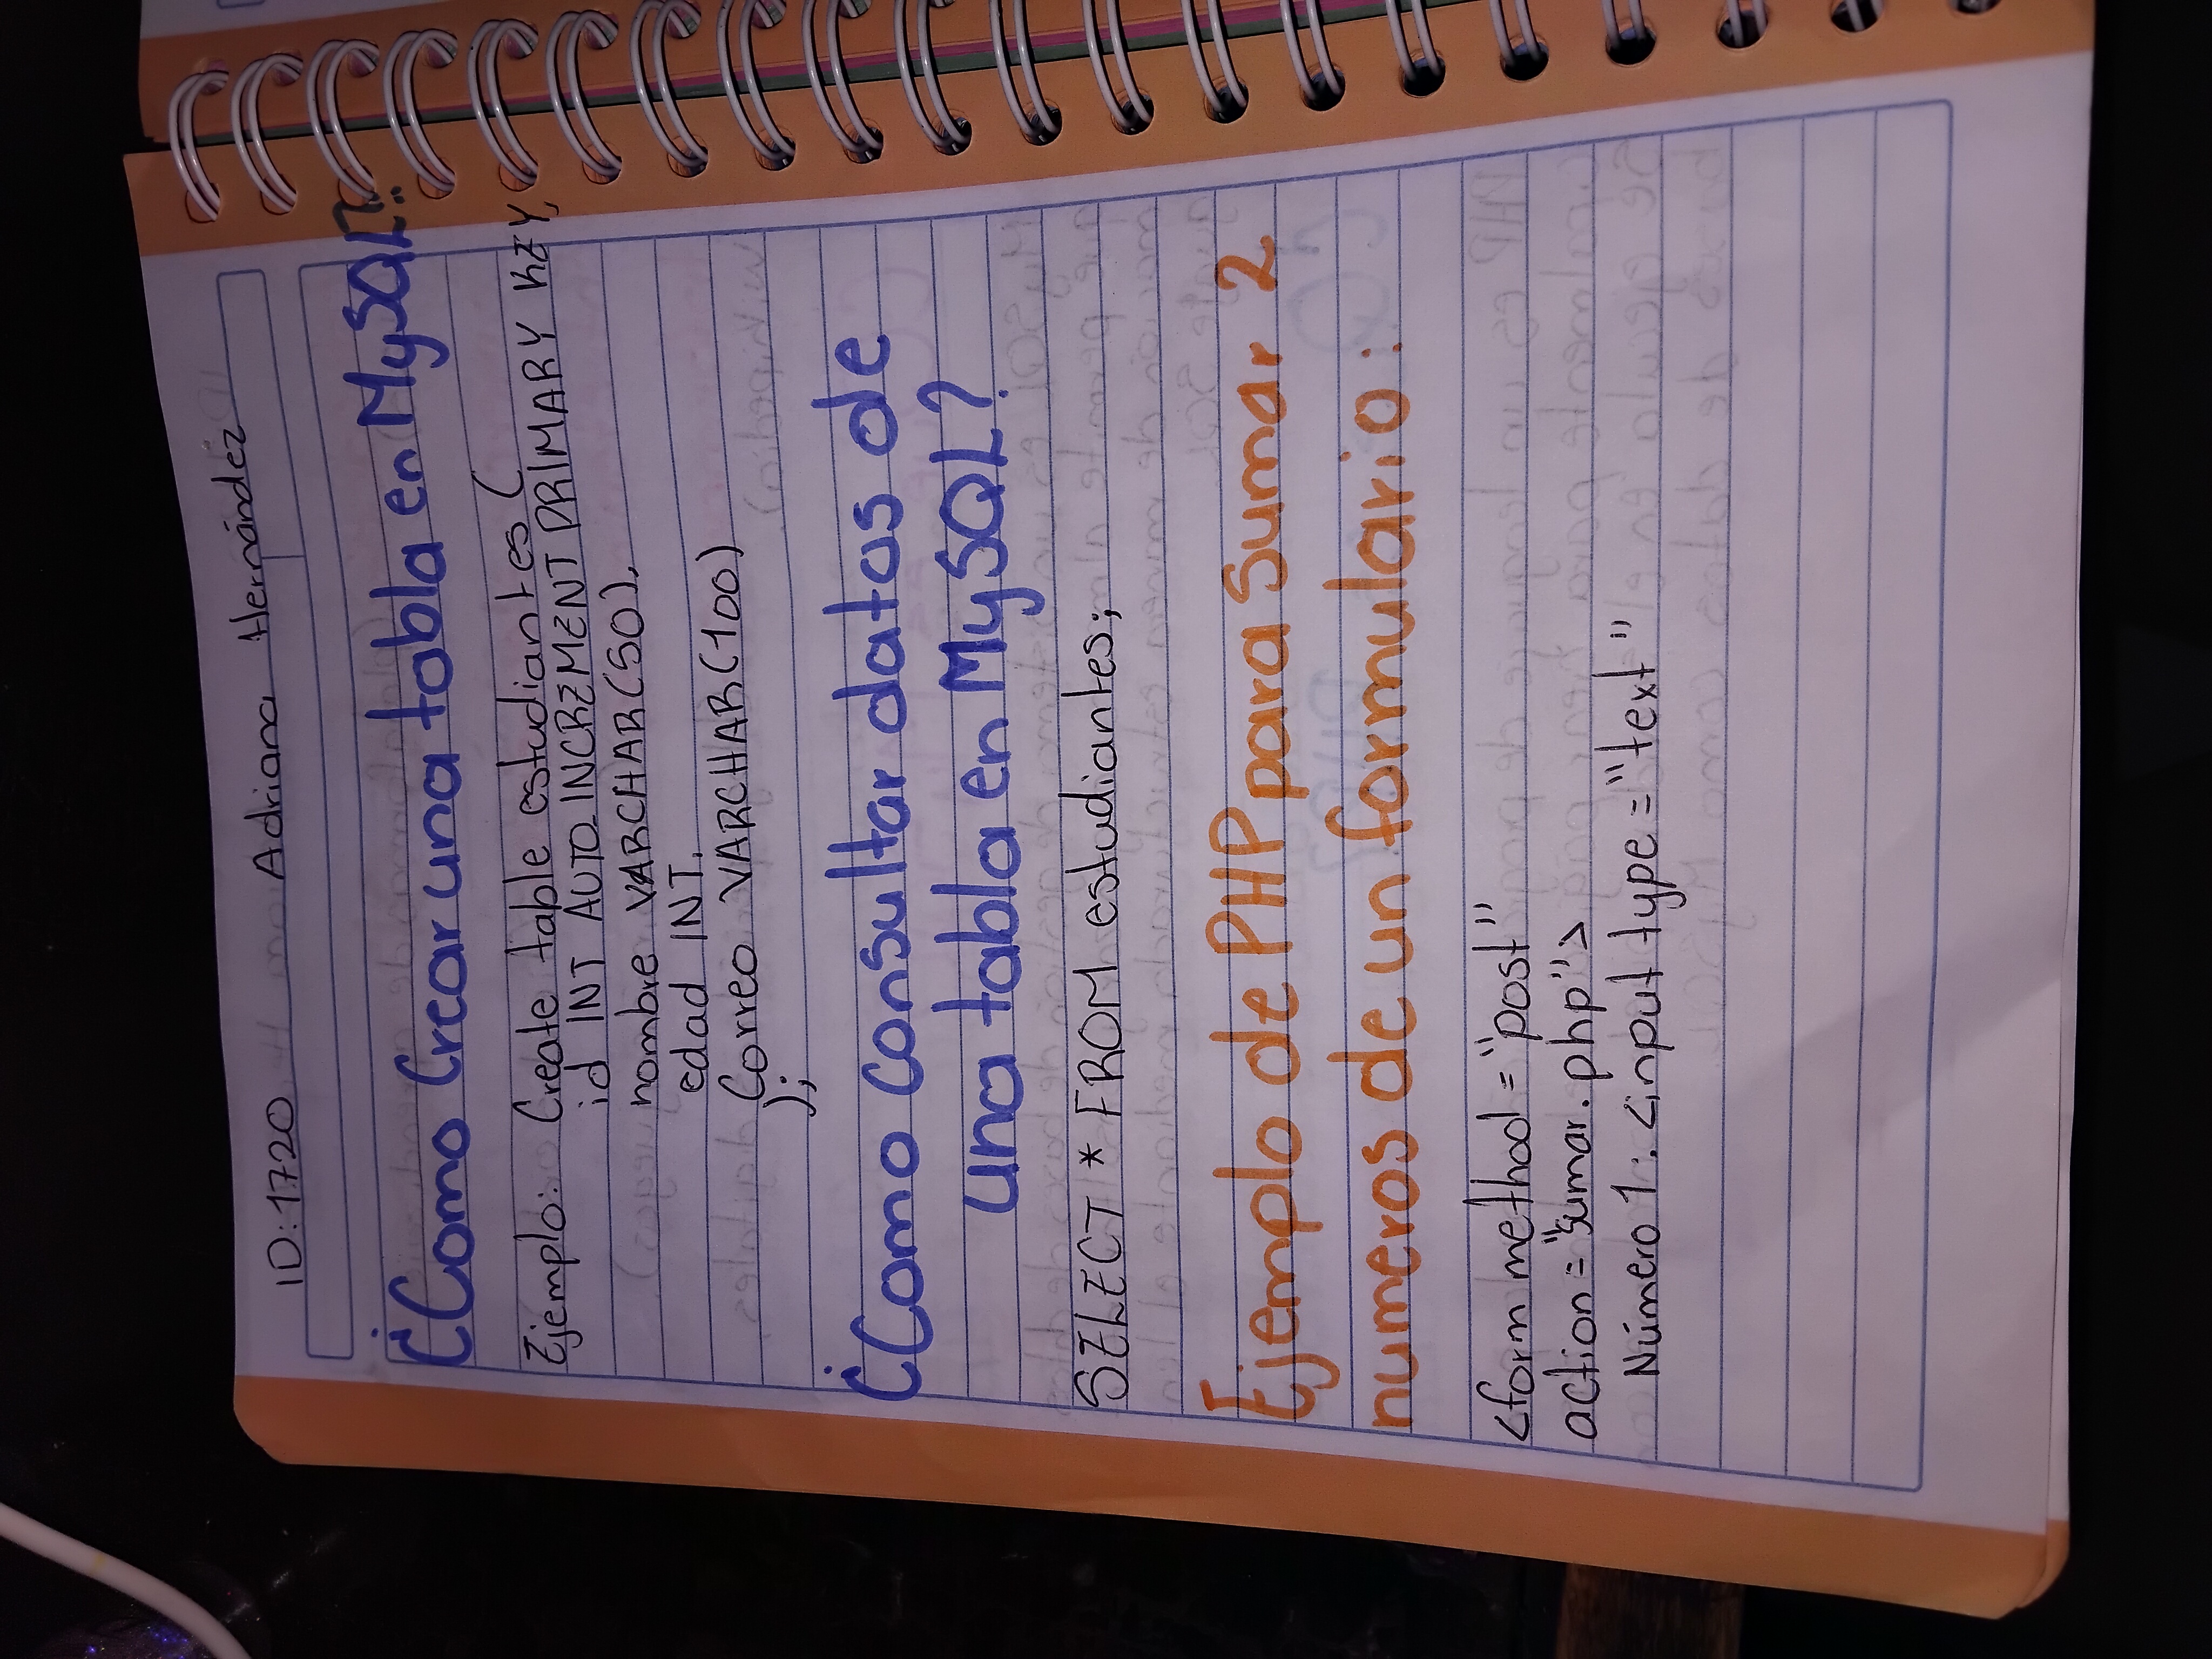 ID:1720 Adriana Hernández
¿Como Crear una tabla en MySQL?:
Ejemplo: Create table estudiantes (
id INT AUTO_INCREMENT PRIMARY KEY,
nombre VARCHAR(50),
edad INT,
Correo VARCHAR(100)
);
¿Como Consultar datos de
una tabla en MySQL?
SELECT * FROM estudiantes;
Ejemplo de PHP para Sumar 2
numeros de un formulario:
<form method="post"
action="sumar.php">
Número 1: <input type="text"